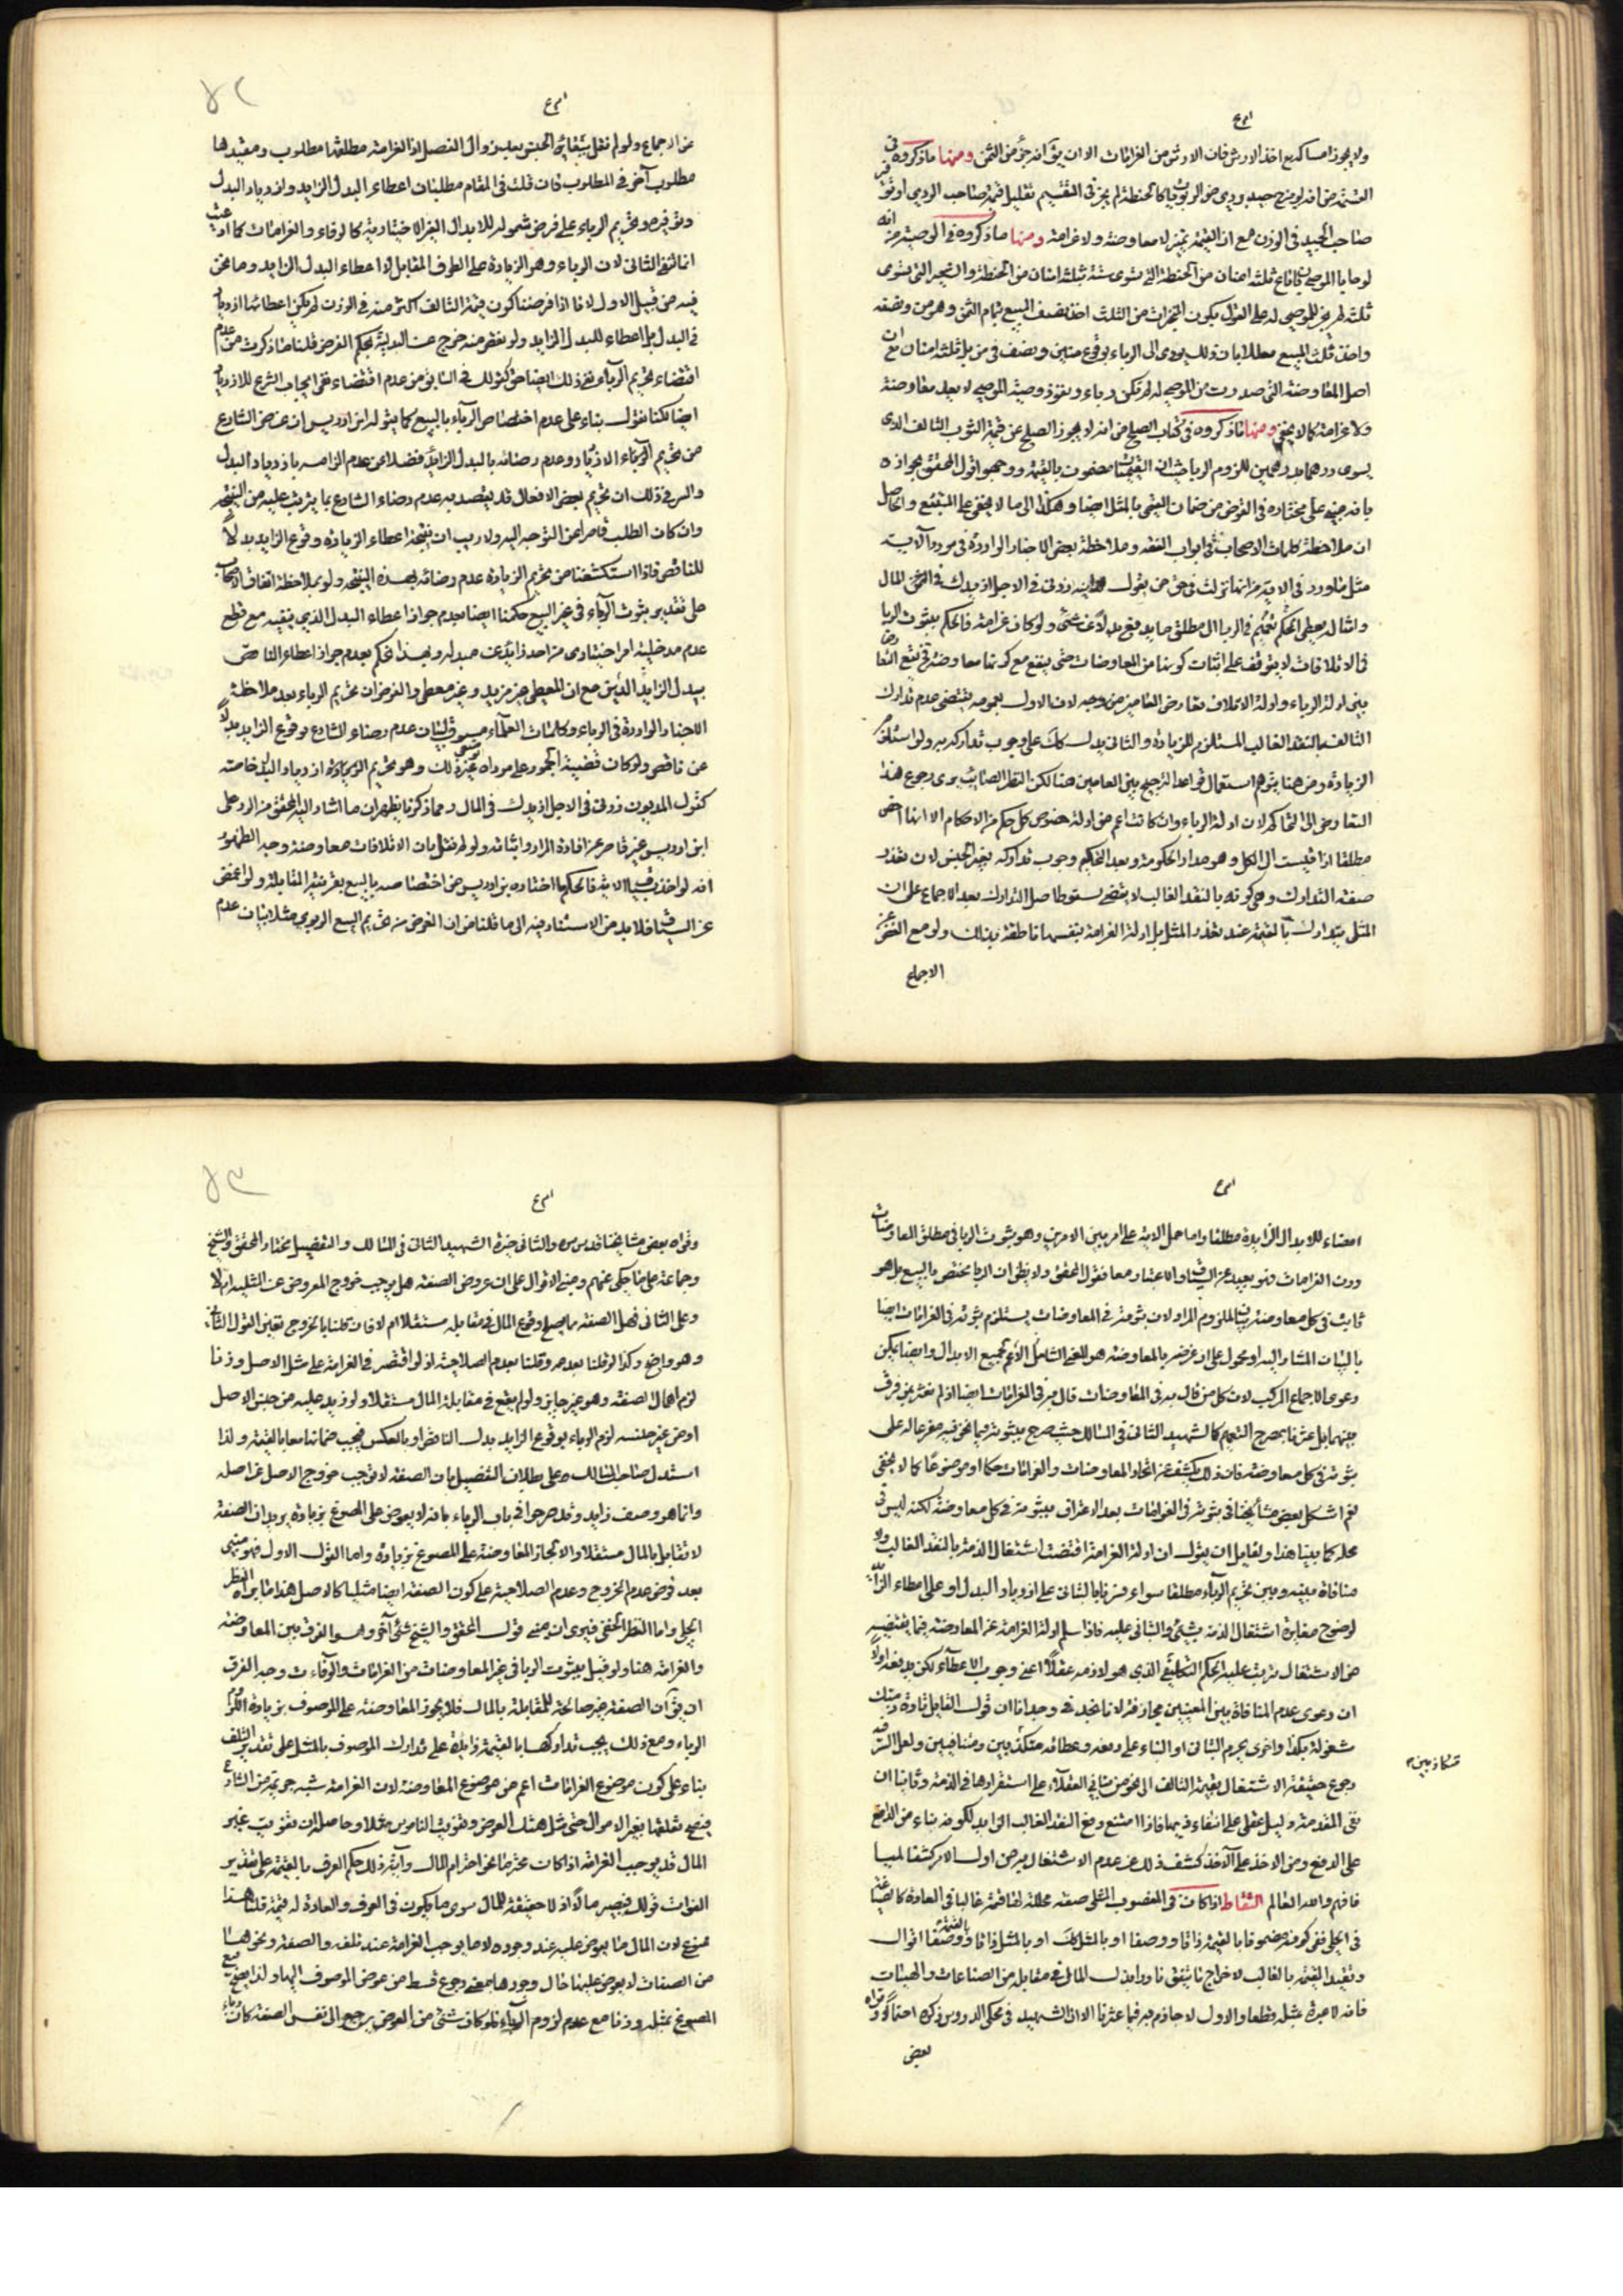 ولا يجوز امساكه مع اخذ الارش فان الارش من الغرامات الا ان يقال انه جزء من الثمن ومنها ما ذكروه في
القسمة من انه لو مزج جيد بردى من الربويات كالحنطة لم يجز في التقسيم تقليل قيمة صاحب الردى او
صاحب الجيد في الوزن مع ان القسمة تميز لا معاوضة ولا غرامة ومنها ما ذكروه في الوصية من انه
ثلثة لم يجز للموصى له على القول بكون المنجزات من الثلث اخذ نصف المبيع بتمام الثمن وهو من ونصفه
اصل المعاوضة التي صدرت من الموصى له لم تكن رباء ونفوذ وصية الموصى لا يعد معاوضة
ولا غرامة كما لا يخفى ومنها ما ذكروه في كتاب الصلح من انه لا يجوز الصلح عن قيمة الثوب التالف الذى
يسوى درهما بدرهمين للزوم الربا حيث ان القيميات مضمون بالقيمة ووجهوا قول المحقق بجوازه
بانه مبنى على مختاره في القرض من ضمان القيمى بالمثل ايضا وهكذا الى ما لا يخفى على المتتبع والحاصل
ان ملاحظة كلمات الاصحاب في ابواب الفقه وملاحظة بعض الاخبار الواردة في مورد الآية
مثل ما ورد في الآية من انها نزلت في حق من يقول لمداينه زدنى في الاجل ازيدك في المال
وامثاله يعطى الحكم بتعميم الربا الى مطلق ما يدفع بدلا عن شئ ولو كان غرامة فالحكم بثبوت الربا
في الاتلافات لا يتوقف على اثبات كونها من المعاوضات حتى يمنع مع كونها معاوضة فيقع التعارض
بين ادلة الرباء وادلة الاتلاف تعارض العامين من وجه لان الاول بعمومه يقتضى عدم تدارك
التالف بالنقد الغالب المستلزم للزيادة والثانى يدل كك على وجوب تداركه به ولو استلزم
الزيادة ومن هنا يتوهم استعمال قواعد الترجيح بين العامين هنا لكن النظر الصائب يرى رجوع هذا
التعارض الى التحاكم لان ادلة الرباء وان كانت اعم من ادلة خصوص كل حكم من الاحكام الا انها اخص
مطلقا اذا قيست الى الكل وهو مدار الحكومة وبعد التحكيم وجب تداركه بغير الجنس لان تعذر
صفة التدارك وهى كونه بالنقد الغالب لا يقضى بسقوط اصل التدارك بعد الاجماع على ان
المثل يتدارك بالقيمة عند تعذر المثل بل ادلة الغرامة بنفسها ناطقة بذلك ولو مع الغض عن
الاجماع
عن الاجماع ولو لم نقل ببقاء الجنس بعد زوال الفصل اذ الغرامة مطلقها مطلوب ومقيدها
مطلوب آخر في المطلوب فان قلت في المقام مطلبان اعطاء البدل الزايد وازدياد البدل
وتوفيره وتحريم الرباء على فرض شموله للابدال الغير الاختيارية كالوفاء والغرامات كما ادعيت
انما نفى الثانى لان الرباء وهو الزيادة على الطرف المقابل لا اعطاء البدل الزايد وما نحن
فيه من قبيل الاول لانا اذا فرضنا كون قيمة التالف اكثر منه في الوزن لم يكن اعطائها ازدياد
في البدل بل اعطاء للبدل الزايد ولو نقص منه خرج عن البدلية بحكم الفرض قلنا ما ذكرت من عدم
اقتضاء تحريم الرباء نفى ذلك ايضا حق كقولك في السابق من عدم اقتضاء نفى ايجاب الشرع للازدياد
ايضا لكنا نقول بناء على عدم اختصاص الرباء بالبيع كما يقوله ابن ادريس ان غرض الشارع
من تحريم الرباء الازدياد وعدم رضائه بالبدل الزايد فضلا عن عدم الزامه بازدياد البدل
والسر في ذلك ان تحريم بعض الافعال قد يقصد به عدم رضاء الشارع بما يترتب عليه من النتيجة
وان كان الطلب قاصرا عن التوجه اليه ولا ريب ان نتيجة اعطاء الزيادة وقوع الزايد بدلا
للناقص فاذا استكشفنا من تحريم الزيادة عدم رضائه بهذه النتيجة ولو بملاحظة اتفاق الاصحاب
على تقدير ثبوت الرباء في غير البيع حكمنا ايضا بعدم جواز اعطاء البدل الذى يقتضيه مع قطع
عدم مدخلية امر اختيارى من احد زايد عن مبدله وبهذا نحكم بعدم جواز اعطاء الناقص
الاخبار الواردة في الرباء وكلمات العلماء مسوق لبيان عدم رضاء الشارع بوقوع الزايد بدلا
عن ناقص ولو كان قضية الجمود على مورداه غير ذلك وهو تحريم ازدياد البدل خاصة
كقول المديون زدنى في الاجل ازيدك في المال ومما ذكرنا يظهر ان ما اشار اليه المحقق من الرد على
ابن ادريس غير قاصر عن افادة المراد واثباته ولو لم نقل بان الاتلافات معاوضة وجه الظهور
انه لو اخذ بسياق الآية فالحكم ما اختاره بن ادريس من اختصاصه بالبيع بقرينة المقابلة ولو اغمض
عن السياق فلا بد من الاستناد فيه الى ما قلنا من ان الغرض من تحريم البيع الربوى مثلا بيان عدم
امضاء للابدال الزايدة مطلقا واما حمل الآية على امر بين الامرين وهو ثبوت الربا في مطلق المعاوضات
دون الغرامات فهو بعيد عن السياق والاعتبار معا فقول المحقق ولا يظن ان الربا يختص بالبيع بل هو
ثابت في كل معاوضة بيان للملزوم المراد لان ثبوته في المعاوضات يستلزم ثبوته في الغرامات ايضا
بالبيان المشار اليه او محمول على ان غرضه بالمعاوضة هو المعنى الشامل الاعم لجميع الابدال وايضا يمكن
دعوى الاجماع المركب لان كل من قال به في المعاوضات قال به في الغرامات ايضا اذ لم نعثر بمن فرق
بينهما بل عثرنا بمصرح التعميم كالشهيد الثانى في المسالك حيث صرح بثبوته فيما نحن فيه مفرعا له على
ثبوته في كل معاوضة فان ذلك يكشف عن اتحاد المعاوضات والغرامات حكما او موضوعا كما لا يخفى
نعم اشكل بعض مشايخنا في ثبوته في الغرامات بعد الاعتراف بثبوته في كل معاوضة لكنه ليس في
محله كما بينا هذا ولقايل ان يقول ان ادلة الغرامة اقتضت اشتغال الذمة بالنقد الغالب ولا
منافاة بينه وبين تحريم الرباء مطلقا سواء فسرنا بالثانى على ازدياد البدل او على اعطاء الزايد
لوضوح مغايرة اشتغال الذمة بشئ والثانى عليه فاذا سلم ادلة الغرامة عن المعاوضة فيما يقتضيه
من الاشتغال يترتب عليه الحكم التكليفى الذى هو لازمه عقلا اعنى وجوب الاعطاء لكن يدفعه اولا
ان دعوى عدم المنافاة بين المعنيين مجازفة لانا نجد في وجداننا ان قول القايل تارة ذمتك
مشغولة بكذا واخرى يحرم الثانى او البناء على دفعه وعطائه متكاذبين ومتنافيين ولعل السر فيه
رجوع حقيقة الاشتغال بقيمة التالف الى نحو من تبانى العقلاء على استقرارها في الذمة وثانيا ان
نفى المقدمة دليل عقلى على انتفاء ذيها فاذا امتنع دفع النقد الغالب الزايد لكونه بناء من الدافع
على الدفع ومن الآخذ على الاخذ كشف ذلك عن عدم الاشتغال به من اول الامر كشفا لميا
فافهم والله العالم التقاط اذا كانت في المغصوب المثلى صفة محللة لها قيمة غالبا في العادة كالصياغة
في الحلى ففى كونه مضمونا بالقيمة ذاتا ووصفا او بالمثل كك او بالمثل ذاتا وبالقيمة وصفا اقوال
وتقييد القيمة بالغالب لاخراج ما يتفق نادرا بذل المال في مقابله من الصناعات والهيئات
فانه لا عبرة بمثله قطعا والاول لا جازم به فيما عثرنا الا ان الشهيد في محكى الدروس ذكره احتمالا وقواه
بعض
متكاذبين
وقواه بعض مشايخنا قدس سره والثانى خيرة الشهيد الثانى في المسالك والتفصيل مختار المحقق والشيخ
وجماعة على ما حكى عنهم ومبنى الاقوال على ان عروض الصفة هل يوجب خروج المعروض عن المثلية ام لا
وعلى الثانى فهل الصفة مما يصلح وقوع المال في مقابله مستقلا ام لا فان قلنا بالخروج تعين القول الثانى
وهو واضح وكذا لو قلنا بعدمه وقلنا بعدم الصلاحية اذ لو اقتصر في الغرامة على مثل الاصل وزنا
لزم اهمال الصفة وهو غير جايز ولو لم يقع في مقابلة المال مستقلا ولو زيد عليه من جنس الاصل
او من غير جنسه لزم الرباء بوقوع الزايد بدل الناقص او بالعكس فيجب ضمانها معا بالقيمة ولذا
استدل صاحب المسالك على بطلان التفصيل بان الصفة لا توجب خروج الاصل عن اصله
وانما هو وصف زايد وقد صرحوا في باب الرباء بانه لا يعوض على المصوغ بزيادة يريد ان الصفة
لا تقابل بالمال مستقلا والا لجاز المعاوضة على المصوغ بزيادة واما القول الاول فهو مبنى
بعد فرض عدم الخروج وعدم الصلاحية على كون الصفة ايضا مثليا كالاصل هذا ما يراه النظر
الجلى واما النظر الخفى فيرى ان مبنى قول المحقق والشيخ شئ آخر وهو الفرق بين المعاوضة
والغرامة هنا ولو قيل بثبوت الربا في غير المعاوضات من الغرامات والوفاءات وجه الفرق
ان يقال ان الصفة غير صالحة للمقابلة بالمال فلا يجوز المعاوضة على الموصوف بزيادة للزوم
الرباء ومع ذلك يجب تداركها بالقيمة زايدة على تدارك الموصوف بالمثل على تقدير التلف
بناء على كون موضوع الغرامات اعم من موضوع المعاوضة لان الغرامة شبه جريمة من الشارع
فيصح تعلقها بغير الاموال حتى مثل هتك العرض وتفويت الناموس مثلا وحاصله ان تفويت غير
المال قد يوجب الغرامة اذا كانت محترما نحو احترام المال وآية ذلك حكم العرف بالقيمة على تقدير
الفوات قولك فيصير مالا اذ لا حقيقة للمال سوى ما يكون في العرف والعادة له قيمة قلنا هذا
ممنوع لان المال ما يعوض عليه عند وجوده لا ما يوجب الغرامة عند تلفه والصفة ونحوها
من الصفات لا يعوض عليها حال وجودها بمعنى رجوع قسط من عوض الموصوف اليها ولذا يصح بيع
المصوغ بمثله وزنا مع عدم لزوم الرباء فلو كان شئ من العوض يرجع الى نفس الصفة كان رباء